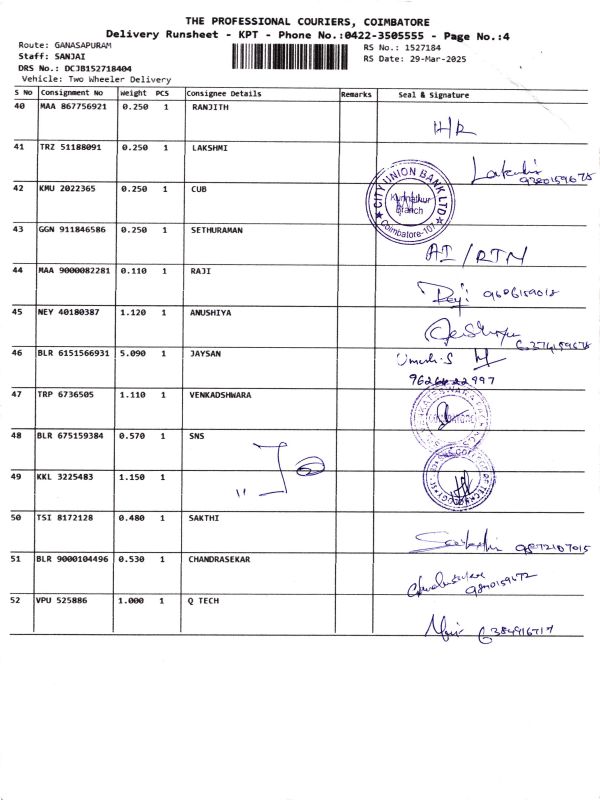 THE PROFESSIONAL COURIERS, COIMBATORE
Delivery Runsheet - KPT - Phone No.:0422-3505555 - Page No.:4
Route: GANASAPURAM
RS No.: 1527184
Staff: SANJAI
RS Date: 29-Mar-2025
DRS No.: DCJB152718404
Vehicle: Two Wheeler Delivery
S No Consignment No Weight PCS Consignee Details Remarks Seal & Signature
40 MAA 867756921 0.250 1 RANJITH
H/R
41 TRZ 51188091 0.250 1 LAKSHMI
42 KMU 2022365 0.250 1 CUB
CITY UNION BANK LTD
Kunnathur
Branch
Coimbatore-107
43 GGN 911846586 0.250 1 SETHURAMAN
AI / RTN
44 MAA 9000082281 0.110 1 RAJI
45 NEY 40180387 1.120 1 ANUSHIYA
46 BLR 6151566931 5.090 1 JAYSAN
Umesh.S
47 TRP 6736505 1.110 1 VENKADSHWARA
48 BLR 675159384 0.570 1 SNS
49 KKL 3225483 1.150 1
50 TSI 8172128 0.480 1 SAKTHI
9872107015
51 BLR 9000104496 0.530 1 CHANDRASEKAR
52 VPU 525886 1.000 1 Q TECH